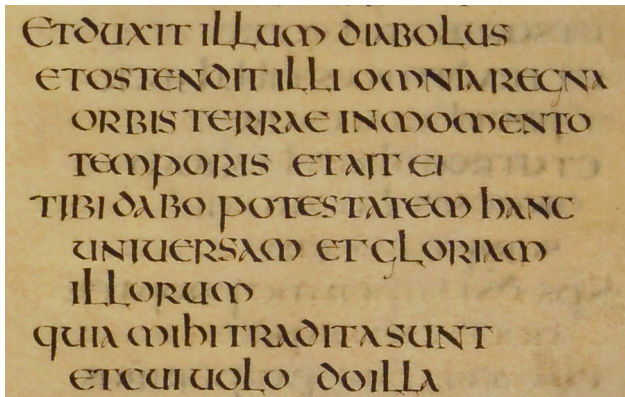 ETDUXIT ILLUM DIABOLUS
ETOSTENDIT ILLI OMNIA REGNA
ORBIS TERRAE INMOMENTO
TEMPORIS ETAIT EI
TIBI DABO POTESTATEM HANC
UNIUERSAM ET GLORIAM
ILLORUM
QUIA MIHI TRADITA SUNT
ETCUI UOLO DO ILLA